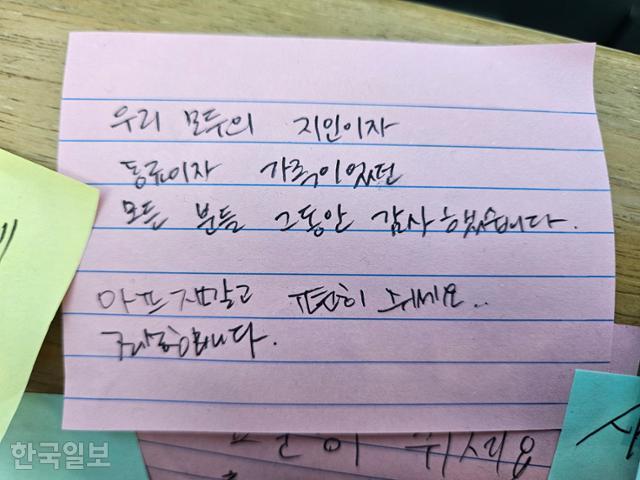 우리 모두의 지인이자
동료이자 가족이었던
모든 분들 그동안 감사했습니다.
아프지말고 편히 쉬세요..
죄송합니다.
한국일보